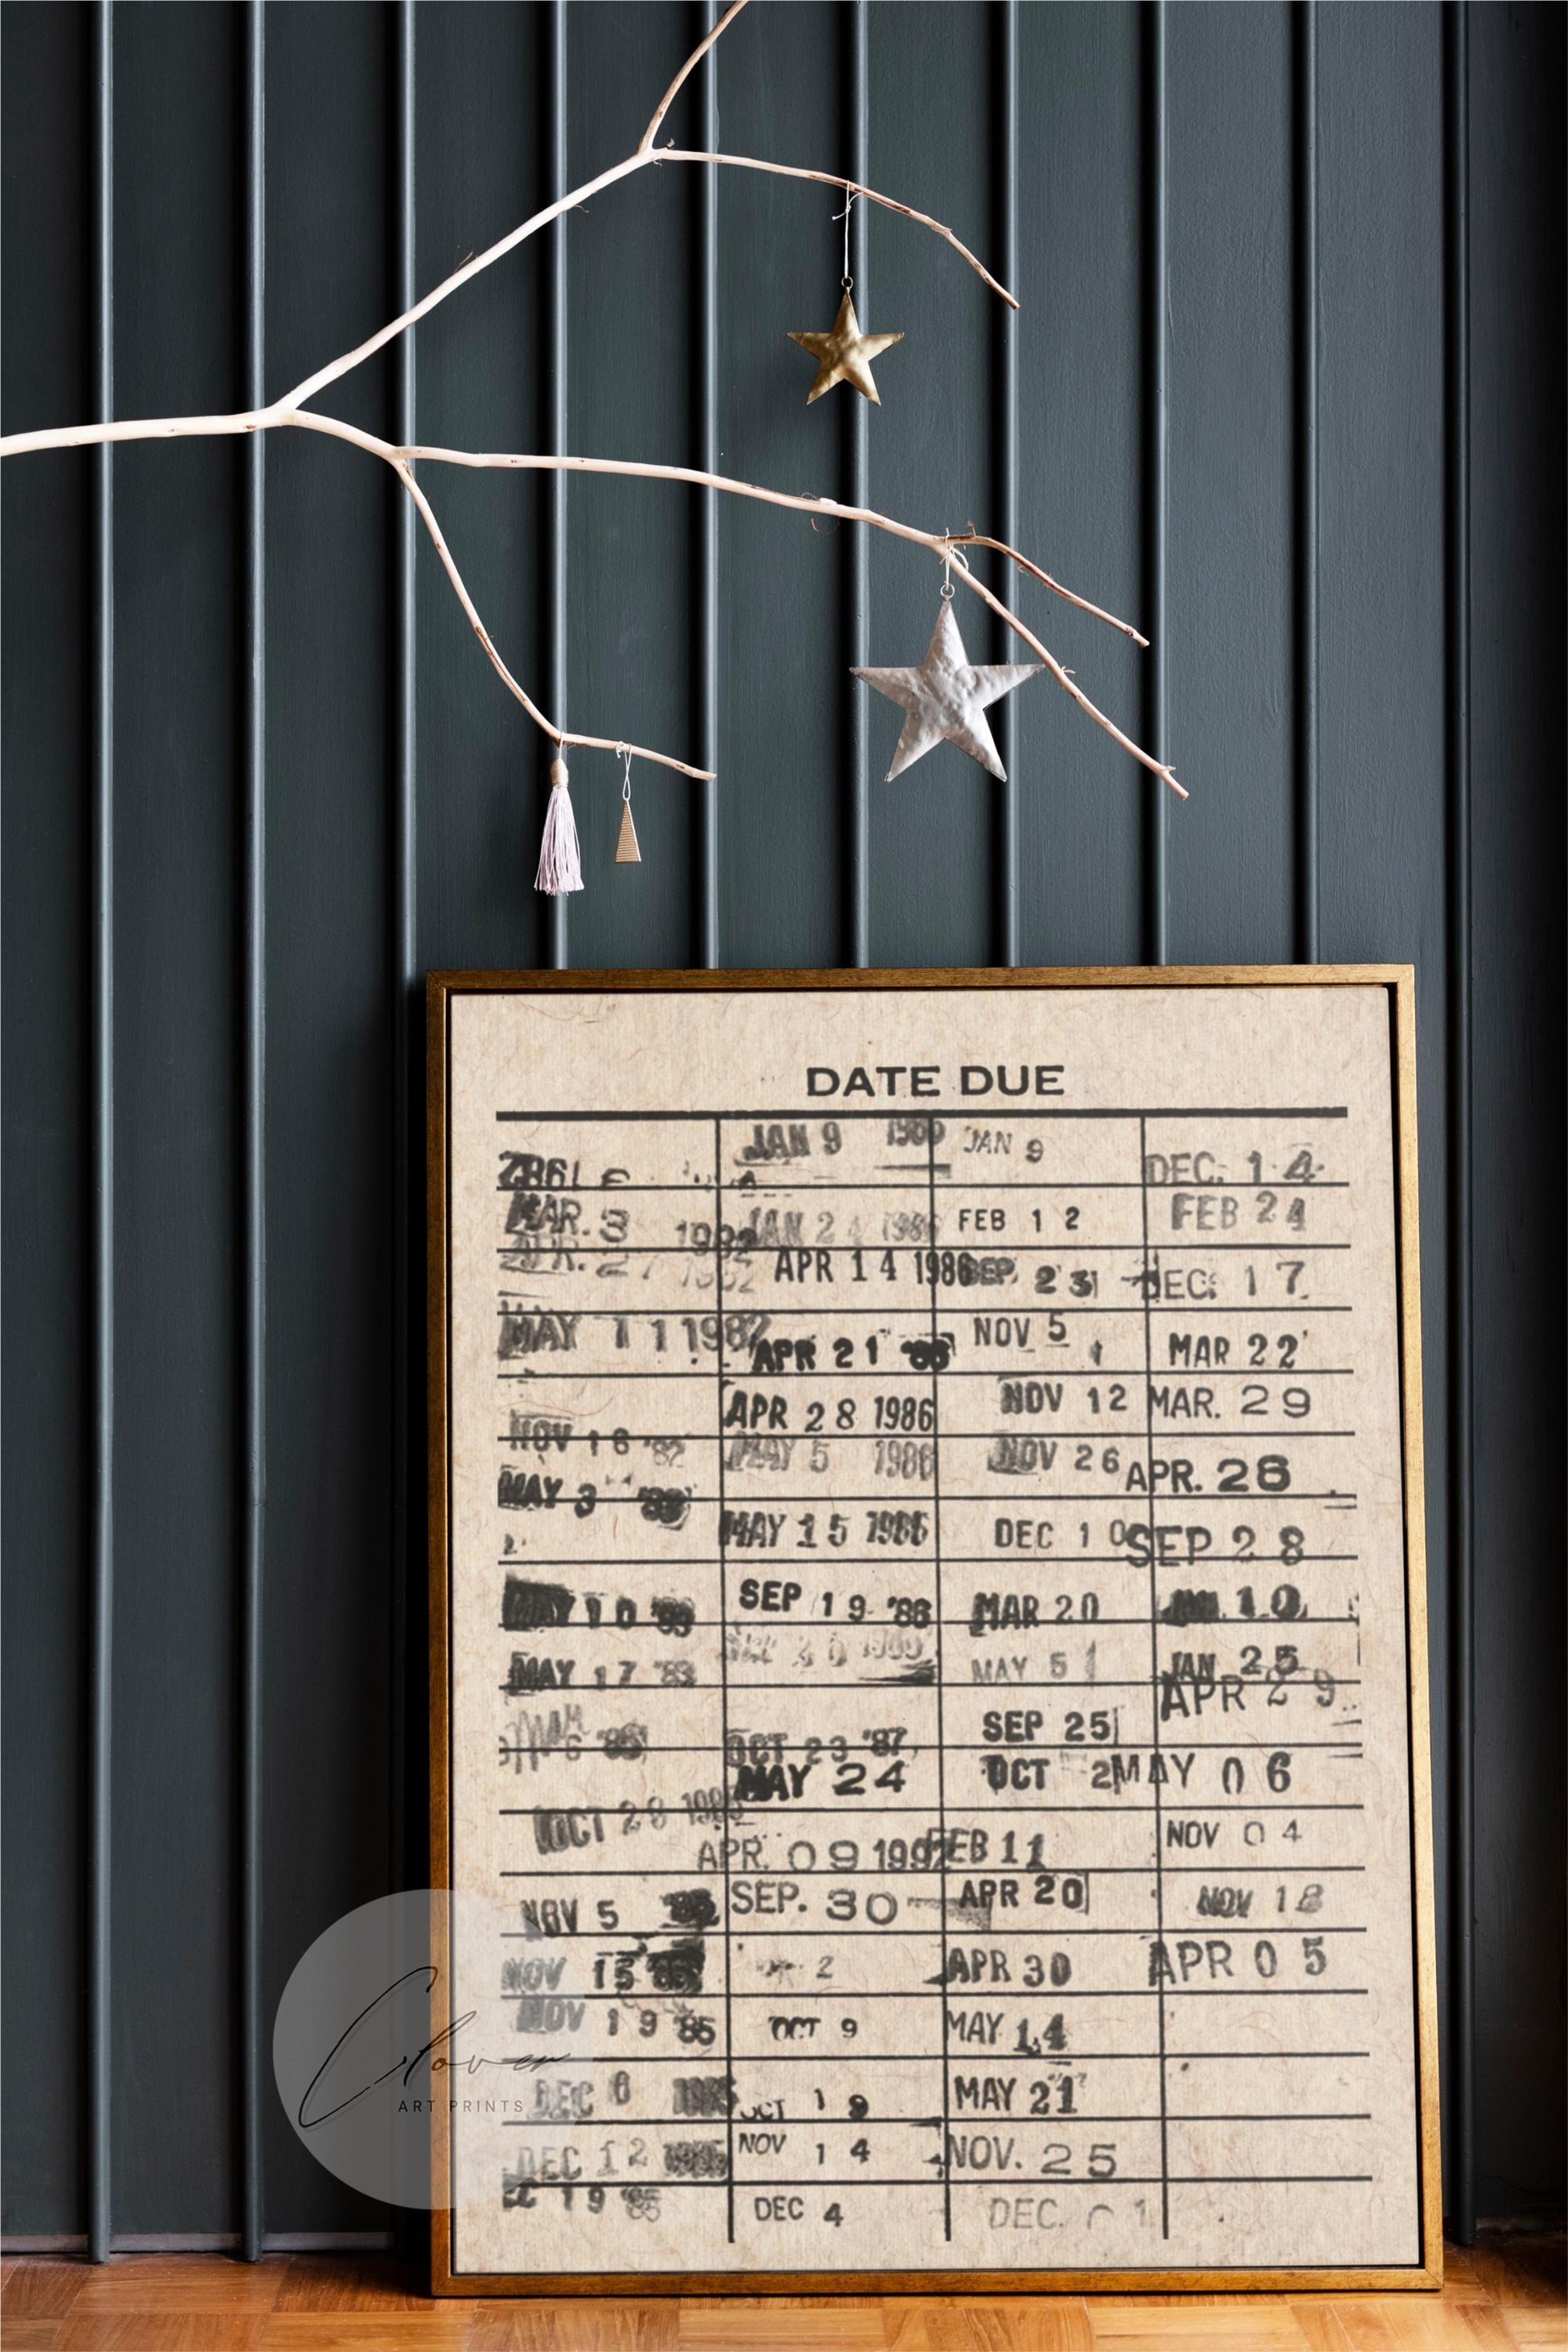 DATE DUE
JAN 9
JAN 9
DEC. 1 4
MAR. 3 1982
JAN 2 4 1986
FEB 1 2
FEB 2 4
APR. 27 1982
APR 1 4 1986
SEP 2 3
DEC. 1 7
MAY 1 1 1982
APR 2 1 '86
NOV 5
MAR 2 2
APR 2 8 1986
NOV 1 2
MAR. 2 9
NOV 1 6 '82
MAY 5 1986
NOV 2 6
APR. 2 6
MAY 3
MAY 1 5 1986
DEC 1 0
SEP 2 8
MAY 1 0 '83
SEP 1 9 '86
MAR 2 0
JAN 1 0
MAY 1 7 '83
MAY 5
JAN 2 5
APR 2 9
SEP 25
OCT 2 3 '87
MAY 24
OCT 2
MAY 0 6
OCT 2 8
APR. 0 9 1997
FEB 11
NOV 0 4
NOV 5
SEP. 30
APR 20
NOV 1 8
NOV 15
2
APR 30
APR 0 5
NOV 1 9 '85
OCT 9
MAY 1 4
DEC 6
OCT 1 9
MAY 21
DEC 1 2
NOV 1 4
NOV. 2 5
EC 1 9 '85
DEC 4
DEC. 1
Clover
ART PRINTS